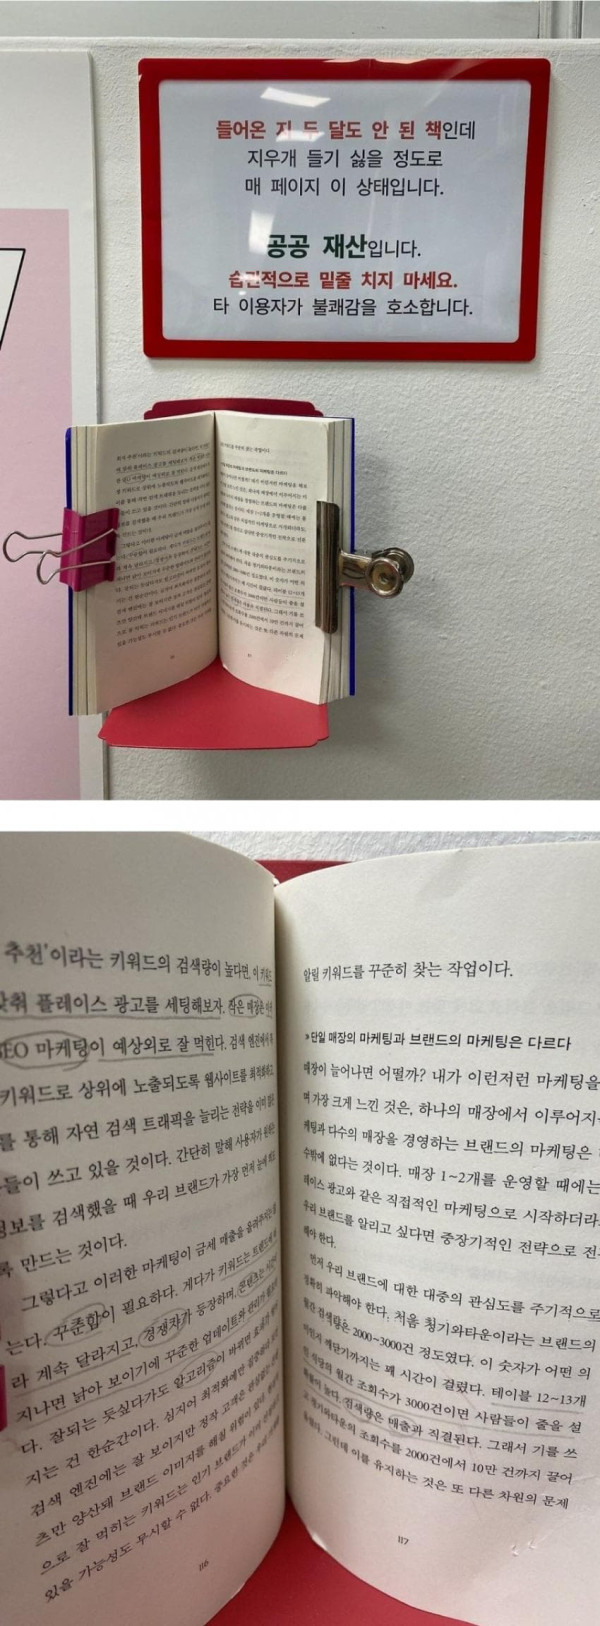 들어온 지 두 달도 안 된 책인데
지우개 들기 싫을 정도로
매 페이지 이 상태입니다.
공공 재산입니다.
습관적으로 밑줄 치지 마세요.
타 이용자가 불쾌감을 호소합니다.
추천'이라는 키워드의 검색량이 높다면, 이 키워드
맞춰 플레이스 광고를 세팅해보자. 작은 매장은
SEO 마케팅이 예상외로 잘 먹힌다. 검색 엔진에서
키워드로 상위에 노출되도록 웹사이트를 최적화하고,
를 통해 자연 검색 트래픽을 늘리는 전략을 이미 많은
들이 쓰고 있을 것이다. 간단히 말해 사용자가 원하는
정보를 검색했을 때 우리 브랜드가 가장 먼저 눈에 띄도
록 만드는 것이다.
그렇다고 이러한 마케팅이 금세 매출을 올려주지는 않
는다. 꾸준함이 필요하다. 게다가 키워드는 트렌드에 따
라 계속 달라지고, 경쟁자가 등장하며, 콘텐츠는 시간이
지나면 낡아 보이기에 꾸준한 업데이트와 관리가 필요하
다. 잘되는 듯싶다가도 알고리즘이 바뀌면 효과가 떨어
지는 건 한순간이다. 심지어 최적화에만 집중하다 보면
검색 엔진에는 잘 보이지만 정작 고객은 관심없는 콘텐
츠만 양산돼 브랜드 이미지를 해칠 위험이 있다. 현재
으로 잘 먹히는 키워드는 인기 브랜드가 이미 선점했
있을 가능성도 무시할 수 없다. 중요한 것은 우리
116
알릴 키워드를 꾸준히 찾는 작업이다.
»단일 매장의 마케팅과 브랜드의 마케팅은 다르다
매장이 늘어나면 어떨까? 내가 이런저런 마케팅을
며 가장 크게 느낀 것은, 하나의 매장에서 이루어지는
케팅과 다수의 매장을 경영하는 브랜드의 마케팅은
수밖에 없다는 것이다. 매장 1~2개를 운영할 때에는
레이스 광고와 같은 직접적인 마케팅으로 시작하더라
우리 브랜드를 알리고 싶다면 중장기적인 전략으로 전
해야 한다.
먼저 우리 브랜드에 대한 대중의 관심도를 주기적으로
정확히 파악해야 한다. 처음 청기와타운이라는 브랜드의
월간 검색량은 2000~3000건 정도였다. 이 숫자가 어떤 의
미인지 깨닫기까지는 꽤 시간이 걸렸다. 테이블 12~13개
인 식당의 월간 조회수가 3000건이면 사람들이 줄을 설
확률이 높다. 검색량은 매출과 직결된다. 그래서 기를 쓰
고 청기와타운의 조회수를 2000건에서 10만 건까지 끌어
올렸다. 그런데 이를 유지하는 것은 또 다른 차원의 문제
117